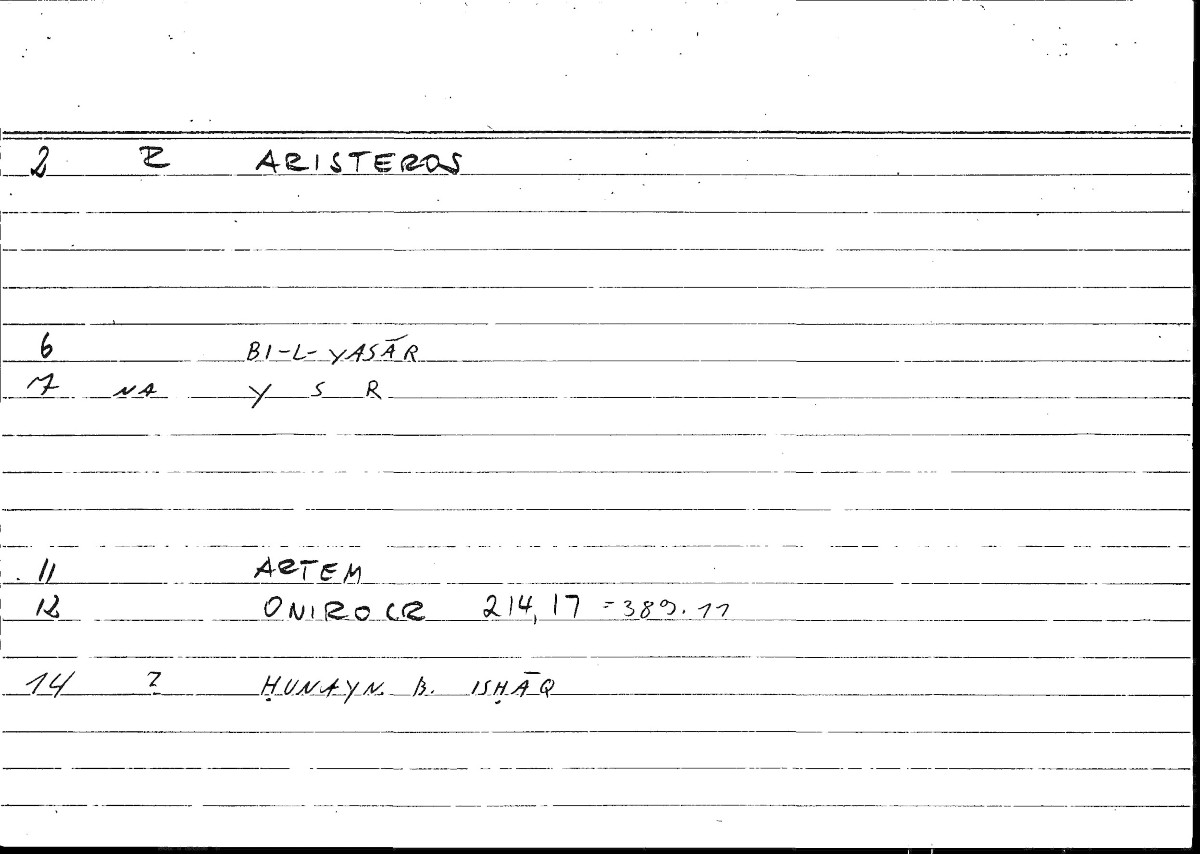 2 Z ARISTEROS
6 BI-L-YASĀR
7 NA Y S R
11 ARTEM
12 ONIROCR 214,17 =389.11
14 ? ḤUNAYN B. ISḤĀQ